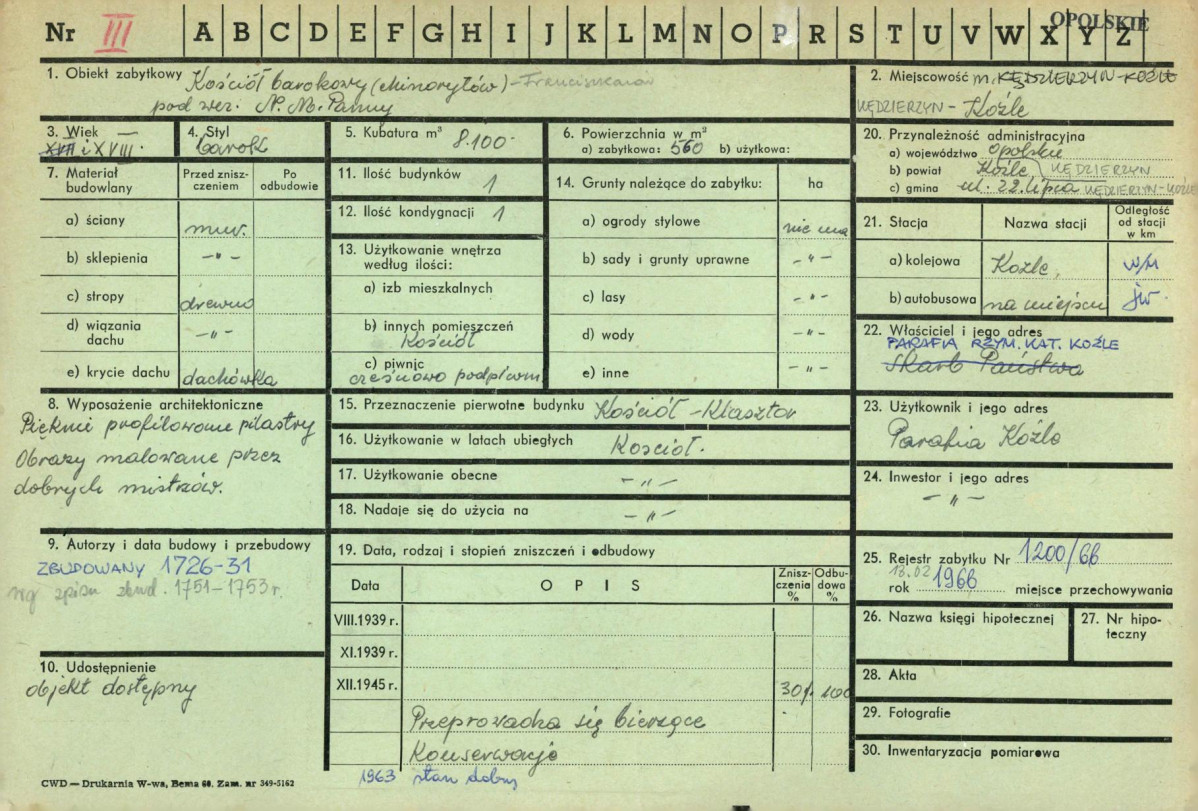 Nr III A B C D E F G H I J K L M N O P R S T U V W X Y Z
OPOLSKIE
1. Obiekt zabytkowy Kościół barokowy (Minorytów) - Franciszkanów
pod wez. N. M. Panny
2. Miejscowość m. KĘDZIERZYN-KOŹLE
KĘDZIERZYN - Koźle
3. Wiek
XVII i XVIII.
4. Styl
barok
5. Kubatura m³
8.100-
6. Powierzchnia w m²
a) zabytkowa: 560 b) użytkowa:
7. Materiał budowlany
Przed zniszczeniem
Po odbudowie
a) ściany mur.
b) sklepienia -"-
c) stropy drewno
d) wiązania dachu -"-
e) krycie dachu dachówka
8. Wyposażenie architektoniczne
Pięknie profilowane pilastry
Obrazy malowane przez
dobrych mistrzów.
9. Autorzy i data budowy i przebudowy
ZBUDOWANY 1726-31
wg spisu zbud. 1751-1753 r.
10. Udostępnienie
objekt dostępny
11. Ilość budynków 1
12. Ilość kondygnacji 1
13. Użytkowanie wnętrza
według ilości:
a) izb mieszkalnych
b) innych pomieszczeń
Kościół
c) piwnic
częśnowo podpiwn.
14. Grunty należące do zabytku: ha
a) ogrody stylowe nie ma
b) sady i grunty uprawne -"-
c) lasy -"-
d) wody -"-
e) inne -"-
15. Przeznaczenie pierwotne budynku Kościół - Klasztor
16. Użytkowanie w latach ubiegłych Kościół.
17. Użytkowanie obecne -"-
18. Nadaje się do użycia na -"-
19. Data, rodzaj i stopień zniszczeń i odbudowy
Data
O P I S
Zniszczenia %
Odbudowa %
VIII.1939 r.
XI.1939 r.
XII.1945 r. 30% 100
Przeprowadza się bierzące
Konserwacje
1963 stan dobry
20. Przynależność administracyjna
a) województwo opolskie
b) powiat Koźle KĘDZIERZYN
c) gmina ul. 22 lipca KĘDZIERZYN-KOŹLE
21. Stacja
Nazwa stacji
Odległość od stacji w km
a) kolejowa Koźle, w/m
b) autobusowa na miejscu jw.
22. Właściciel i jego adres
PARAFIA RZYM. KAT. KOŹLE
Skarb Państwa
23. Użytkownik i jego adres
Parafia Koźle
24. Inwestor i jego adres
-"-
25. Rejestr zabytku Nr 1200/66
18.02
rok 1966 miejsce przechowywania
26. Nazwa księgi hipotecznej
27. Nr hipoteczny
28. Akta
29. Fotografie
30. Inwentaryzacja pomiarowa
CWD — Drukarnia W-wa, Bema 60. Zam. nr 349-5162